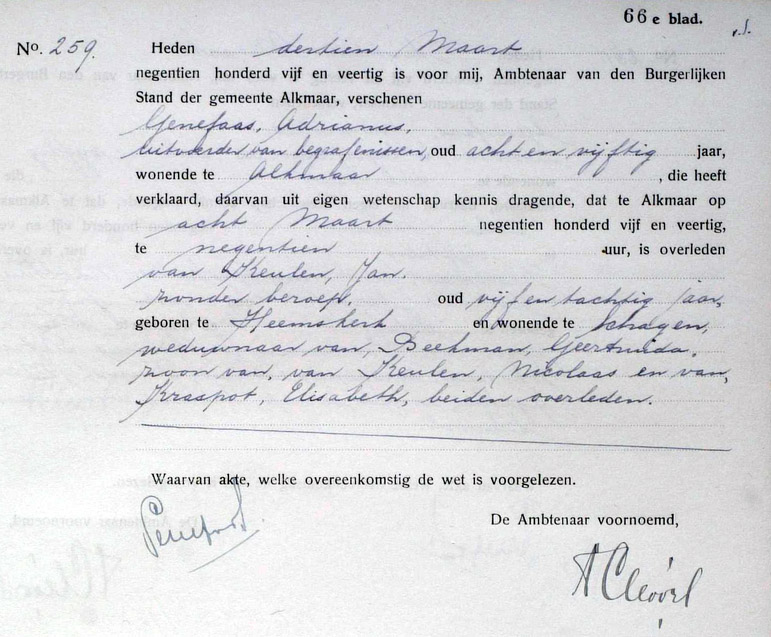 66e blad.
No. 259. Heden dertien Maart
negentien honderd vijf en veertig is voor mij, Ambtenaar van den Burgerlijken
Stand der gemeente Alkmaar, verschenen
Genefaas, Adrianus,
uitvoerder van begrafenissen, oud acht en vijftig jaar,
wonende te Alkmaar, die heeft
verklaard, daarvan uit eigen wetenschap kennis dragende, dat te Alkmaar op
acht Maart negentien honderd vijf en veertig,
te negentien uur, is overleden
van Keulen, Jan.
zonder beroep, oud vijf en tachtig jaar,
geboren te Heemskerk en wonende te Schagen,
weduwnaar van, Beekman, Geertruida,
zoon van, van Keulen, Nicolaas en van,
Kraspot, Elisabeth, beiden overleden.
Waarvan akte, welke overeenkomstig de wet is voorgelezen.
De Ambtenaar voornoemd,